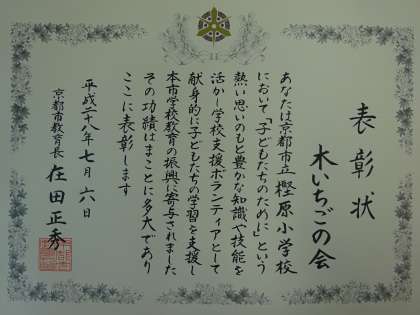 表彰状
木いちごの会
あなたは京都市立樫原小学校
において「子どもたちのために」という
熱い思いのもと豊かな知識や技能を
活かし学校支援ボランティアとして
献身的に子どもたちの学習を支援し
本市学校教育の振興に寄与されました
その功績はまことに多大であり
ここに表彰します
平成二十八年七月六日
京都市教育長 在田正秀